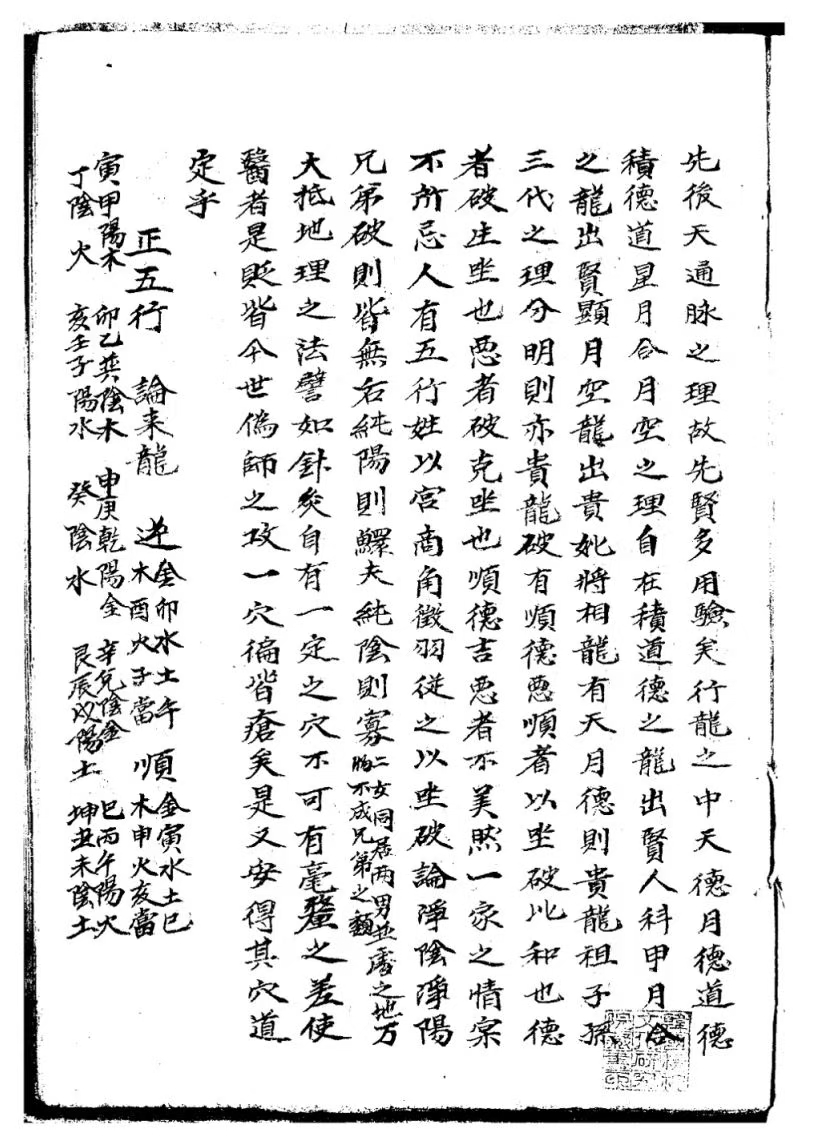 先後天通脉之理故先賢多用驗矣行龍之中天德月德道德
積德道星月合月空之理自在積道德之龍出賢人科甲月合
之龍出賢顯月空龍出貴妣將相龍有天月德則貴龍祖子孫
三代之理分明則亦貴龍破有順德惡順者以坐破比和也德
者破生坐也惡者破克坐也順德吉惡者不美然一家之情宲
不所忌人有五行姓以宮商角徵羽従之以坐破論淨陰淨陽
兄弟破則皆無右純陽則鰥夫純陰則寡二女同居两男並處之地万
物不成兄弟之類
大抵地理之法譬如針灸自有一定之穴不可有毫釐之差使
醫者是貶皆今世僞師之攻一穴徧皆瘡矣是又安得其穴道
定乎
正五行 論来龍 逆 金卯水土午
木酉火子當 順 金寅水土巳
木申火亥當
寅甲陽木 卯乙巽陰木 申庚乾陽金 辛兌陰金 巳丙午陽火
丁陰火 亥壬子陽水 癸陰水 艮辰戌陽土 坤丑未陰土